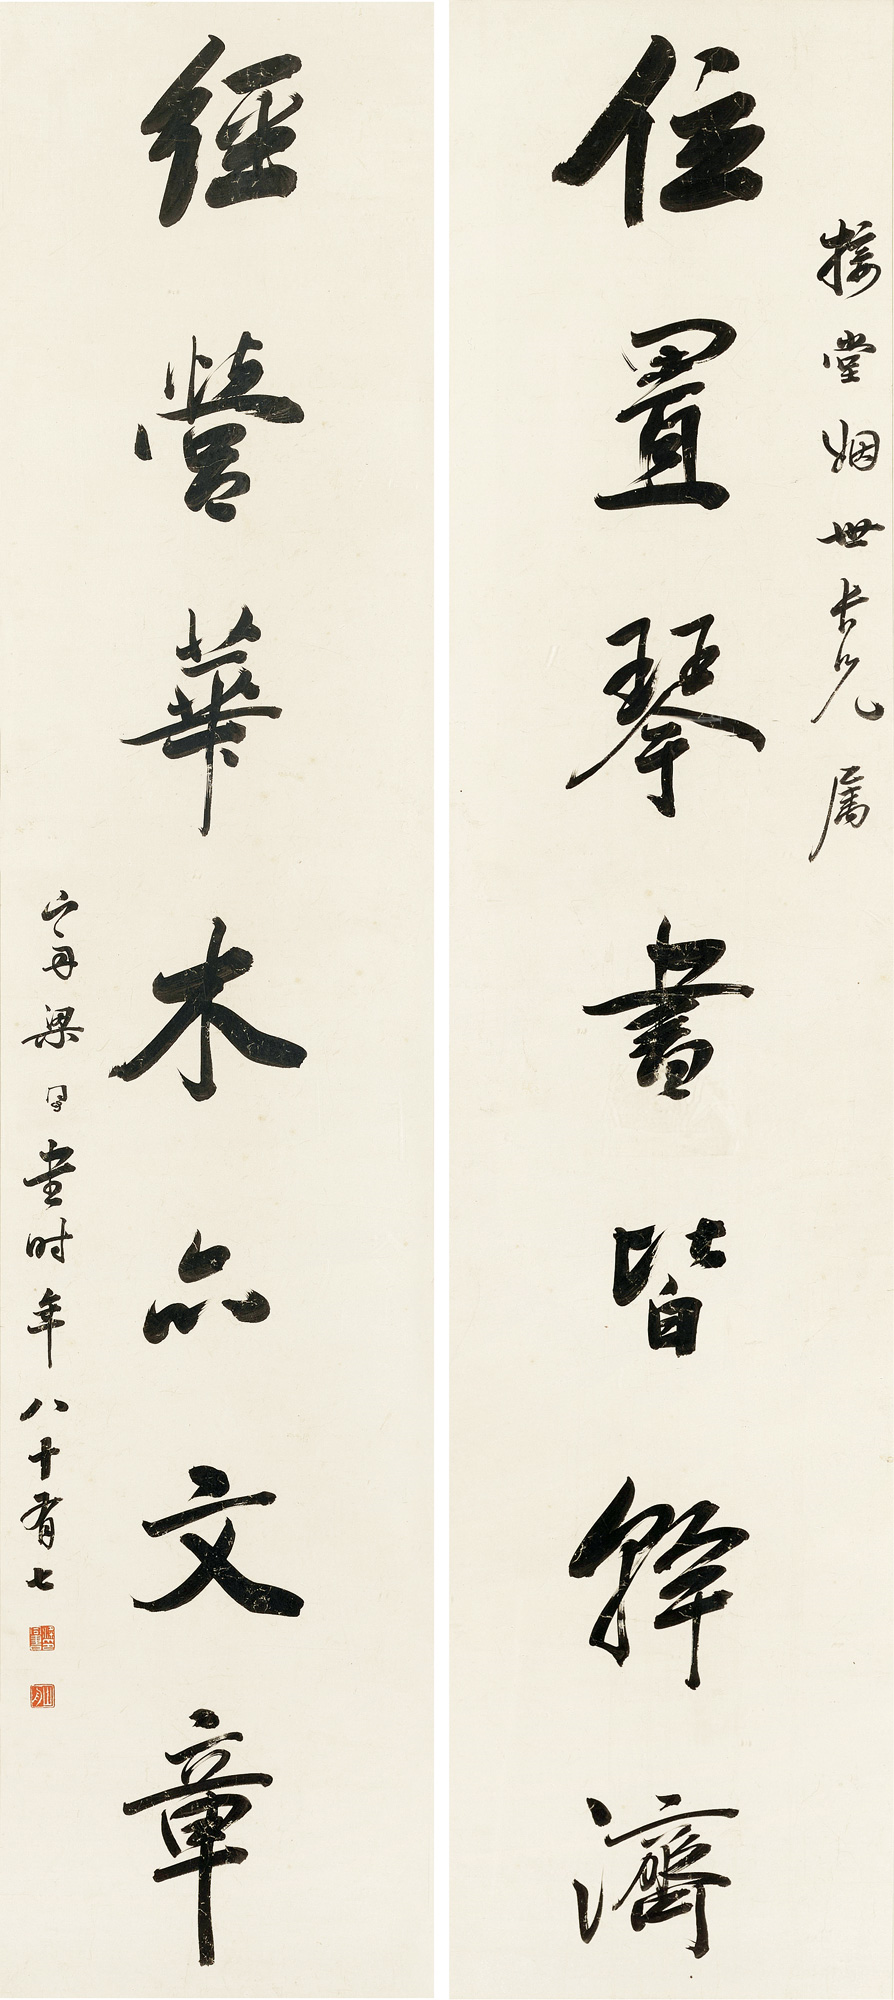 接堂姻世长兄属
位置琴書皆幹濟
經營華木亦文章
山舟梁同書时年八十有七